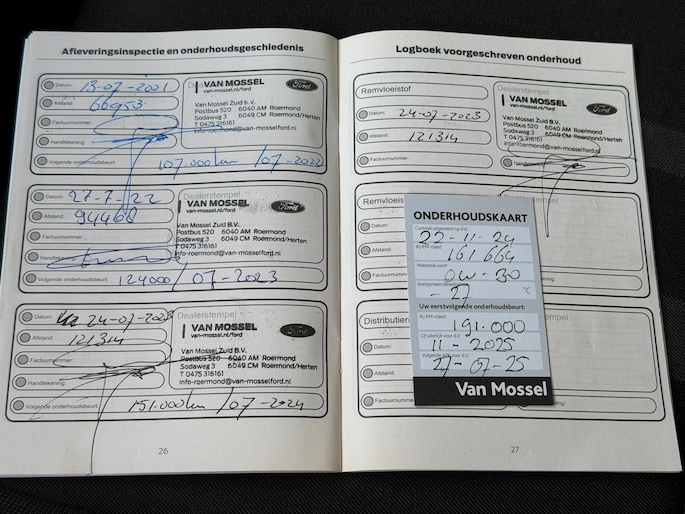 Afleveringsinspectie en onderhoudsgeschiedenis
Datum: 13-07-2021
Afstand: 66953
Factuurnummer:
Handtekening:
Volgende onderhoudsbeurt: 107.000km /07-2022
VAN MOSSEL
van-mossel.nl/ford
Ford
Van Mossel Zuid B.V.
Postbus 520 6040 AM Roermond
Sodaweg 3 6049 CM Roermond/Herten
T 0475 316161
info-roermond@van-mosselford.nl
Datum: 27-7-22
Afstand: 94468
Handtekening:
Volgende onderhoudsbeurt: 124000/07-2023
Dealerstempel
VAN MOSSEL
van-mossel.nl/ford
Ford
Van Mossel Zuid B.V.
Postbus 520 6040 AM Roermond
Sodaweg 3 6049 CM Roermond/Herten
T 0475 316161
info-roermond@van-mosselford.nl
Datum: 24-07-2023
Afstand: 121314
Factuurnummer:
Handtekening:
Volgende onderhoudsbeurt: 151.000km /07-2024
Dealerstempel
VAN MOSSEL
van-mossel.nl/ford
Ford
Van Mossel Zuid B.V.
Postbus 520 6040 AM Roermond
Sodaweg 3 6049 CM Roermond/Herten
T 0475 316161
info-roermond@van-mosselford.nl
26
Logboek voorgeschreven onderhoud
Remvloeistof
Datum: 24-07-2023
Afstand: 121314
Factuurnummer:
Dealerstempel
VAN MOSSEL
van-mossel.nl/ford
Ford
Van Mossel Zuid B.V.
Postbus 520 6040 AM Roermond
Sodaweg 3 6049 CM Roermond/Herten
T 0475 316161
info-roermond@van-mosselford.nl
Datum:
Afstand:
Factuurnumme
Datum:
Afstand:
Factuurnumme
ONDERHOUDSKAART
Controle uitgevoerd op d.d.
22-11-24
Bij KM-stand
161 664
Motorolie soort
0W-30
-27 °C
Uw eerstvolgende onderhoudsbeurt:
Bij KM-stand
191.000
Of uiterlijk voor d.d.
11-2025
Volgende APK voor d.d.
27-07-25
Van Mossel
27